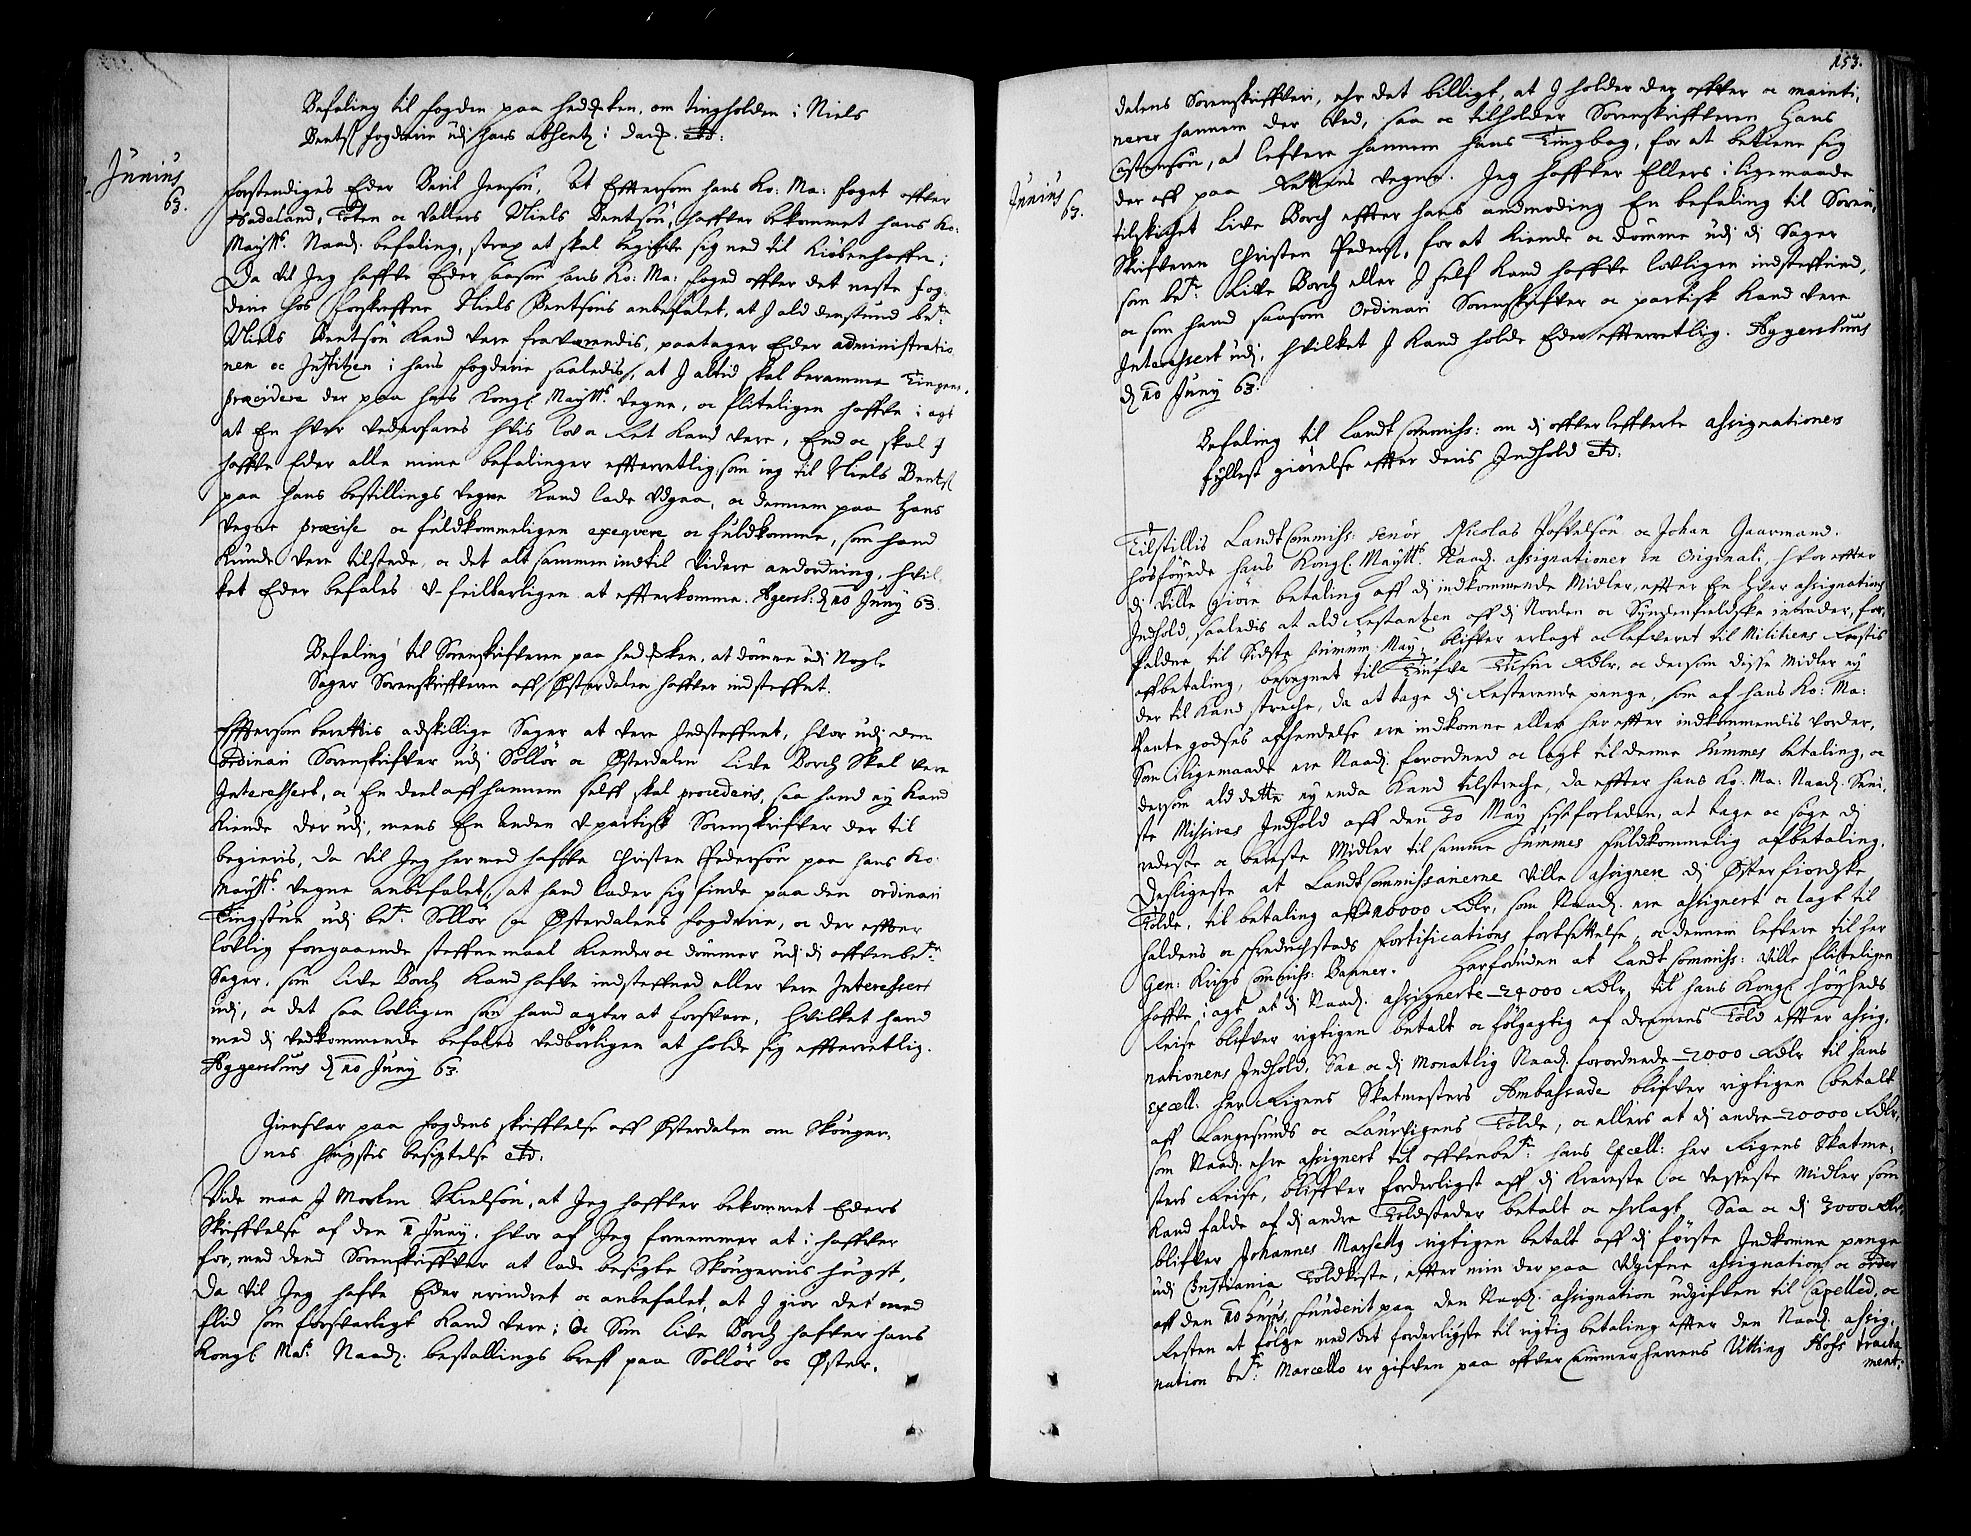 Befaling til fogden paa Hedemken, om tingholden i Niels
Bents: fogderie udj hans absentz i Danm. etc:
Junius
63.
Forstendiges Eder Bertil Jensøn, At Efttersom hans Ko: Ma: foget offuer
Hadeland, Toten oc Valders Niels Bentsøn, haffuer bekommet hans Ko:
Maytts. Naad: befaling, strax at skal begifue sig ned til Kiøbenhaffn;
Da vil Jeg haffue Eder saasom hans Ko: Ma: foged offuer det neste fog-
derie hos forskreffne Niels Bentsøns anbefalet, at J ald denstund be:te
Niels Bentsøn Kand vere fraværendis, paatager Eder administratio
nen oc Justitzen i hans fogderie saaledis, at J altid skal beramme Tingene,
præsidere der paa hans Kongl Maytts. vegne, oc fliteligen haffue i agt
at En huer vederfares hvis lov oc Ret Kand vere, End oc skal J
haffue Eder alle mine befalinger effterretlig, som ieg til Niels Bents:
paa hans bestillings vegne Kand lade udgaa, oc dennem paa Hans
vegne præcise oc fuldkommeligen exeqvere oc fuldkomme, som hand
Kunde vere tilstede, oc det alt sammen indtil videre andordning, hvil-
ket Eder befales u-feilbarligen at effterkomme. Agersh: d 10 Juny 63.
Befaling til Sorenskrifveren paa Hedemken, at dømme udj Nogle
Sager Sorenskriffveren aff Østerdalen haffver indsteffnet.
Efftersom berettis adskillige Sager at vere Indsteffnet, hvor udj den
Ordinari Sorenskrifver udj Solløer oc Østerdalen Live Borch Skal vere
Interessert, oc En deel aff hannem selff skal procederis, saa hand ey Kand
Kiende der udj, mens En Anden u-partisk Sorenskrifver der til
begieris, da vil Jeg her med haffue Christen Pedersøn paa hans Ko:
Maytts. vegne anbefalet, at hand lader sig finde paa den ordinari
Tingstue udj be:te Solløer oc Østerdalens fogderie, oc der effter
lovlig foregaaende steffnemaal Kiender oc dømmer udj di offtenbe:te
Sager, som Live Borch Kand hafve indsteffned eller vere Interessert
udj, oc det saa lovligen som hand agter at forsvare, hvilket hand
med di vedkommende befales vedbørligen at holde sig effterretlig.
Aggershuus d 10 Juny 63.
Giensvar paa fogdens skriffvelse aff Østerdalen om Skouger-
nes hugstis besigtelse etc:
Vide maa J Morten Nielsøn, at Jeg haffver bekommet Eders
Skriffvelse af den 1 Juny, hvor af Jeg fornemmer at i haffver
for, med dend Sorenskriffver at lade besigte Skougernis hugst,
Da vil Jeg hafve Eder erindret oc anbefalet, at J giør det med
flid som forsvarligt Kand vere; Oc Som Live Borch hafver hans
Kongl Mas: Naad: bestallings breff paa Solløer oc Øster-
153.
dalens Sorenskriffveri, ehr det billigt, at J holder der offver oc mainti-
nerer hannem der ved, saa oc tilholder Sorenskriffveren Hans
Castensøn, at leffvere hannem hans Tingbog, for at betiene sig
der aff paa Rettens vegne. Jeg haffver Ellers i ligemaade
Junius
63.
tilskichet Live Borch effter hans andmoding En befaling til Soren-
skrifveren Christen Peders:, for at Kiende oc dømme udj di Sager
som be:te Live Borch eller J self Kand haffve lovligen indsteffned,
oc som hand saasom Ordinari Sorenskrifver oc partisk Kand vere
Interessert udj, hvilket J Kand holde Eder effterretlig. Aggershuus
d 10 Juny 63.
Befaling til Landt Commiss: om di offverleffverte assignationer
fyllest giørelse effter deris Indhold etc:
Tilstillis Landt Commiss: Señor Nicolas Poffvelsøn oc Johan Gaarmand.
hosføyede hans Kongl. Maytts. Naad: assignationer in Originali, hvor effter
di ville giøre betaling aff di indkommende Midler, effter En hver assignations
Indhold, saaledis at ald Restantzen aff di Norden oc Syndenfieldske inbøder, for-
faldne til Sidste primum May, blifver erlagt oc lefveret til Militiens Restis
affbetaling, beregnet til Tiufve Tusind Rdlr, oc dersom disse Midler ey
der til Kand streche, da at tage di Resterende penge, som af hans Ko: Ma:
Pante godsis afhendelse ere indkomne eller her effter indkommendis vorder,
Som i ligemaade ere Naad: forordned oc lagt til denne Summes betaling, oc
dersom ald dette ey enda Kand tilstreche, da effter hans Ko: Ma: Naad: Seni-
ste Missives Indhold aff den 30 May sistforleden, at tage oc søge di
redeste oc beste Midler til samme Summes fuldkommelig afbetaling.
Desligeste at Landt Commissarierne ville assignere di Østerfiordske
Tolde, til betaling aff 16000 Rdlr, som Naad: ere assignert oc lagt til
Haldens oc Fredrichstads Fortifications fortsettelse, oc dennem leffvere til her
Gen: Krigs Commiss: Banner. Herforuden at Landt Commiss: ville fliteligen
haffve i agt at di Naad: assignerte 24000 Rdlr til hans Kongl høyheds
Reise blifver rigtigen betalt oc følgagtig af Dramens Told effter assig-
nationens Indhold, Saa oc di Monatlig Naad: forordnede 2000 Rdlr til hans
Excell: her Rigens Skatmesters Ambassade blifver rigtigen betalt
aff Langesunds oc Laurvigens Tolde, oc ellers at di andre 20000 Rdlr,
som Naad: ehre assignert til offtenbe:te hans Excell: her Rigens Skatme-
sters Reise, bliffver forderligst aff di Klareste oc visseste Midler som
Kand falde af di andre Toldsteder betalt oc ehrlagt. Saa oc di 3000 Rdlr,
blifver Johannes Marsello rigtigen betalt aff di første Indkomne penge
udj Christiania Toldkiste, effter min der paa udgifne assignation oc order
aff den 10 hujus, funderit paa den Naad: assignation udgiffven til Capelled, oc
Resten at følge med det forderligste til rigtig betaling effter den Naad: assig-
nation be:te Marcello er gifven paa offver Cammerherrens Utling Hofs tracta
ment: